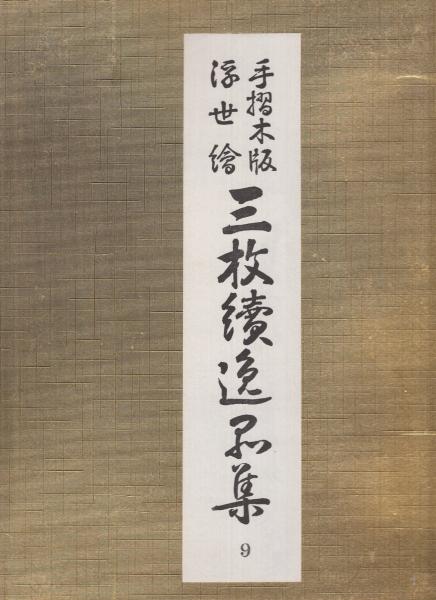 手摺木版
浮世繪
三枚續逸品集
9